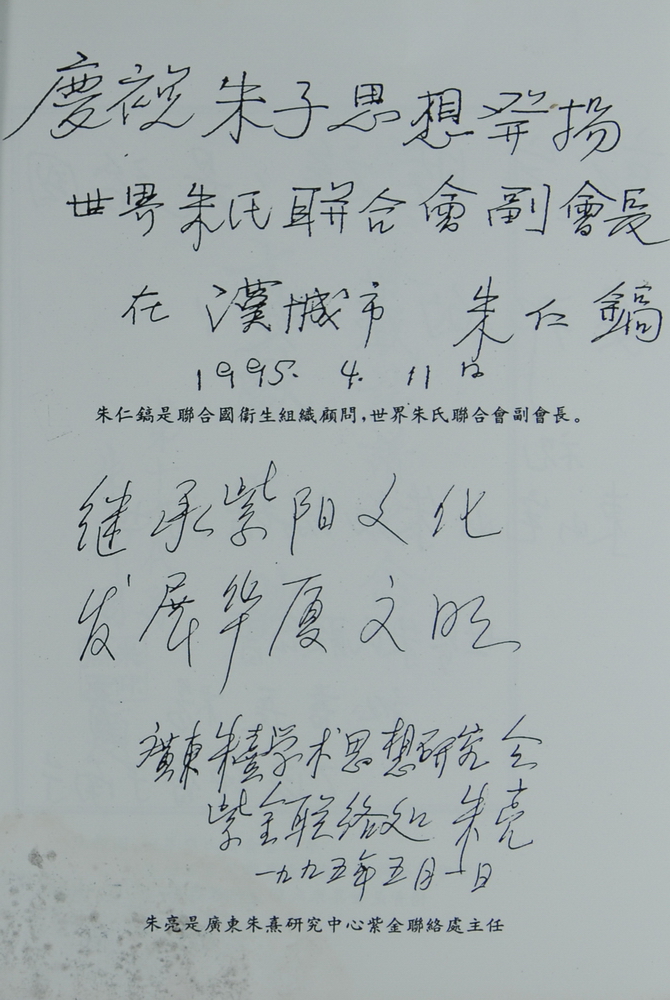 慶祝朱子思想發揚
世界朱氏聯合會副會長
在漢城市 朱仁鎬
1995. 4. 11日
朱仁鎬是聯合國衛生組織顧問，世界朱氏聯合會副會長。
继承紫阳文化
发展华厦文明
廣東朱熹学术思想研究会
紫金联络处 朱亮
一九九五年五月一日
朱亮是廣東朱熹研究中心紫金聯絡處主任